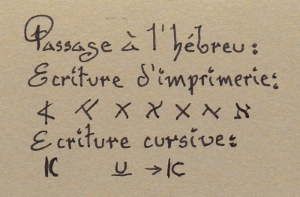 Passage à l'hébreu:
Ecriture d'imprimerie:
א
Ecriture cursive: